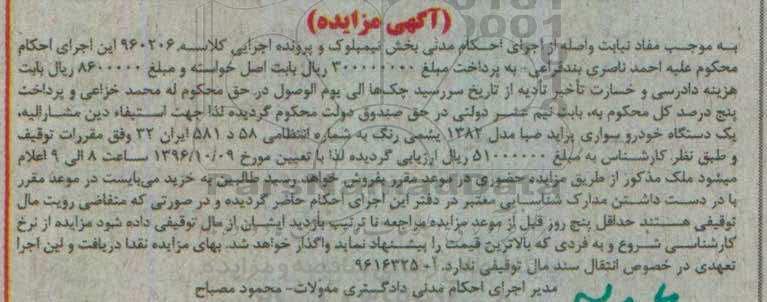 (آگهی مزایده)
به موجب مفاد نیابت واصله از اجرای احکام مدنی بخش نیمبلوک و پرونده اجرایی کلاسه ۹۶۰۲۰۶ این اجرای احکام
محکوم علیه احمد ناصری بندقراعی- به پرداخت مبلغ ۳۰۰۰۰۰۰۰۰ ریال بابت اصل خواسته و مبلغ ۸۶۰۰۰۰۰ ریال بابت
هزینه دادرسی و خسارت تأخیر تأدیه از تاریخ سررسید چک‌ها الی یوم الوصول در حق محکوم له محمد خزاعی و پرداخت
پنج درصد کل محکوم به، بابت نیم عشر دولتی در حق صندوق دولت محکوم گردیده لذا جهت استیفاء دین مشارالیه،
یک دستگاه خودرو سواری پراید صبا مدل ۱۳۸۲ یشمی رنگ به شماره انتظامی ۵۸ د ۵۸۱ ایران ۳۲ وفق مقررات توقیف
و طبق نظر کارشناس به مبلغ ۵۱۰۰۰۰۰۰ ریال ارزیابی گردیده لذا با تعیین مورخ ۱۳۹۶/۱۰/۰۹ ساعت ۸ الی ۹ اعلام
میشود ملک مذکور از طریق مزایده حضوری در موعد مقرر بفروش خواهد رسید طالبین به خرید می‌بایست در موعد مقرر
با در دست داشتن مدارک شناسایی معتبر در دفتر این اجرای احکام حاضر گردیده و در صورتی که متقاضی رویت مال
توقیفی هستند حداقل پنج روز قبل از موعد مزایده مراجعه تا ترتیب بازدید ایشان از مال توقیفی داده شود مزایده از نرخ
کارشناسی شروع و به فردی که بالاترین قیمت را پیشنهاد نماید واگذار خواهد شد. بهای مزایده نقدا دریافت و این اجرا
تعهدی در خصوص انتقال سند مال توقیفی ندارد. آ- ۹۶۱۶۳۲۵
مدیر اجرای احکام مدنی دادگستری مه‌ولات- محمود مصباح
ParsNamadData